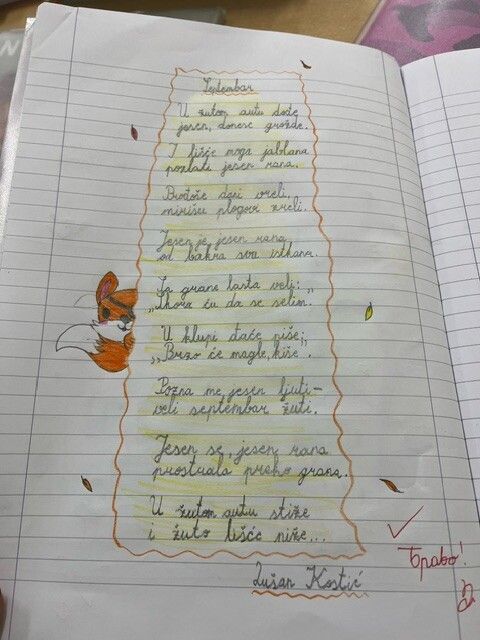 Septembar
U žutom autu dođe
jesen, donese grožđe.
I lišće moga jablana
pozlati jesen rana.
Prođoše dani vreli,
mirišu plodovi zreli.
Jesen je, jesen rana
od bakra sva istkana.
Sa grane lasta veli: „
„Skoro ću da se selim.
U klupi đače piše:,
„Brzo će magle, kiše".
Pozna me jesen ljuti-
veli septembar žuti.
Jesen se, jesen rana
prostrala preko grana.
U žutom autu stiže
i žuto lišće niže...
Dušan Kostić
Браво!